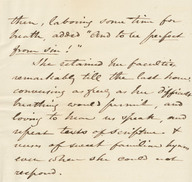 then, laboring some time for
breath, added "And to be perfect
from sin!"
She retained her faculties
remarkably till the last hour,
conversing as freely as her difficult
breathing would permit, and
loving to hear us speak, and
repeat texts of scripture &
verses of sweet familiar hymns
even when she could not
respond.